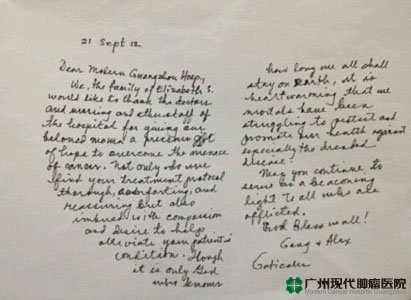 21 Sept 12
Dear Modern Guangzhou Hosp.,
We, the family of Elizabeth S.
would like to thank the doctors
and nursing and other staff of
the hospital for giving our
beloved mama a precious gift
of hope to overcome the menace
of cancer. Not only do we
find your treatment protocal
thorough, comforting, and
reassuring but also
imbued with compassion
and desire to help
alleviate your patient's
condition. Though
it is only God
who knows
how long we all shall
stay on Earth, it is
heartwarming that we
mortals have been
struggling to protect and
promote our health against
especially the dreaded
disease!
May you continue to
serve as a beaconing
light to all who are
afflicted.
God Bless us all!
Geng & Alex
广州现代肿瘤医院
Modern Cancer Hospital Guangzhou